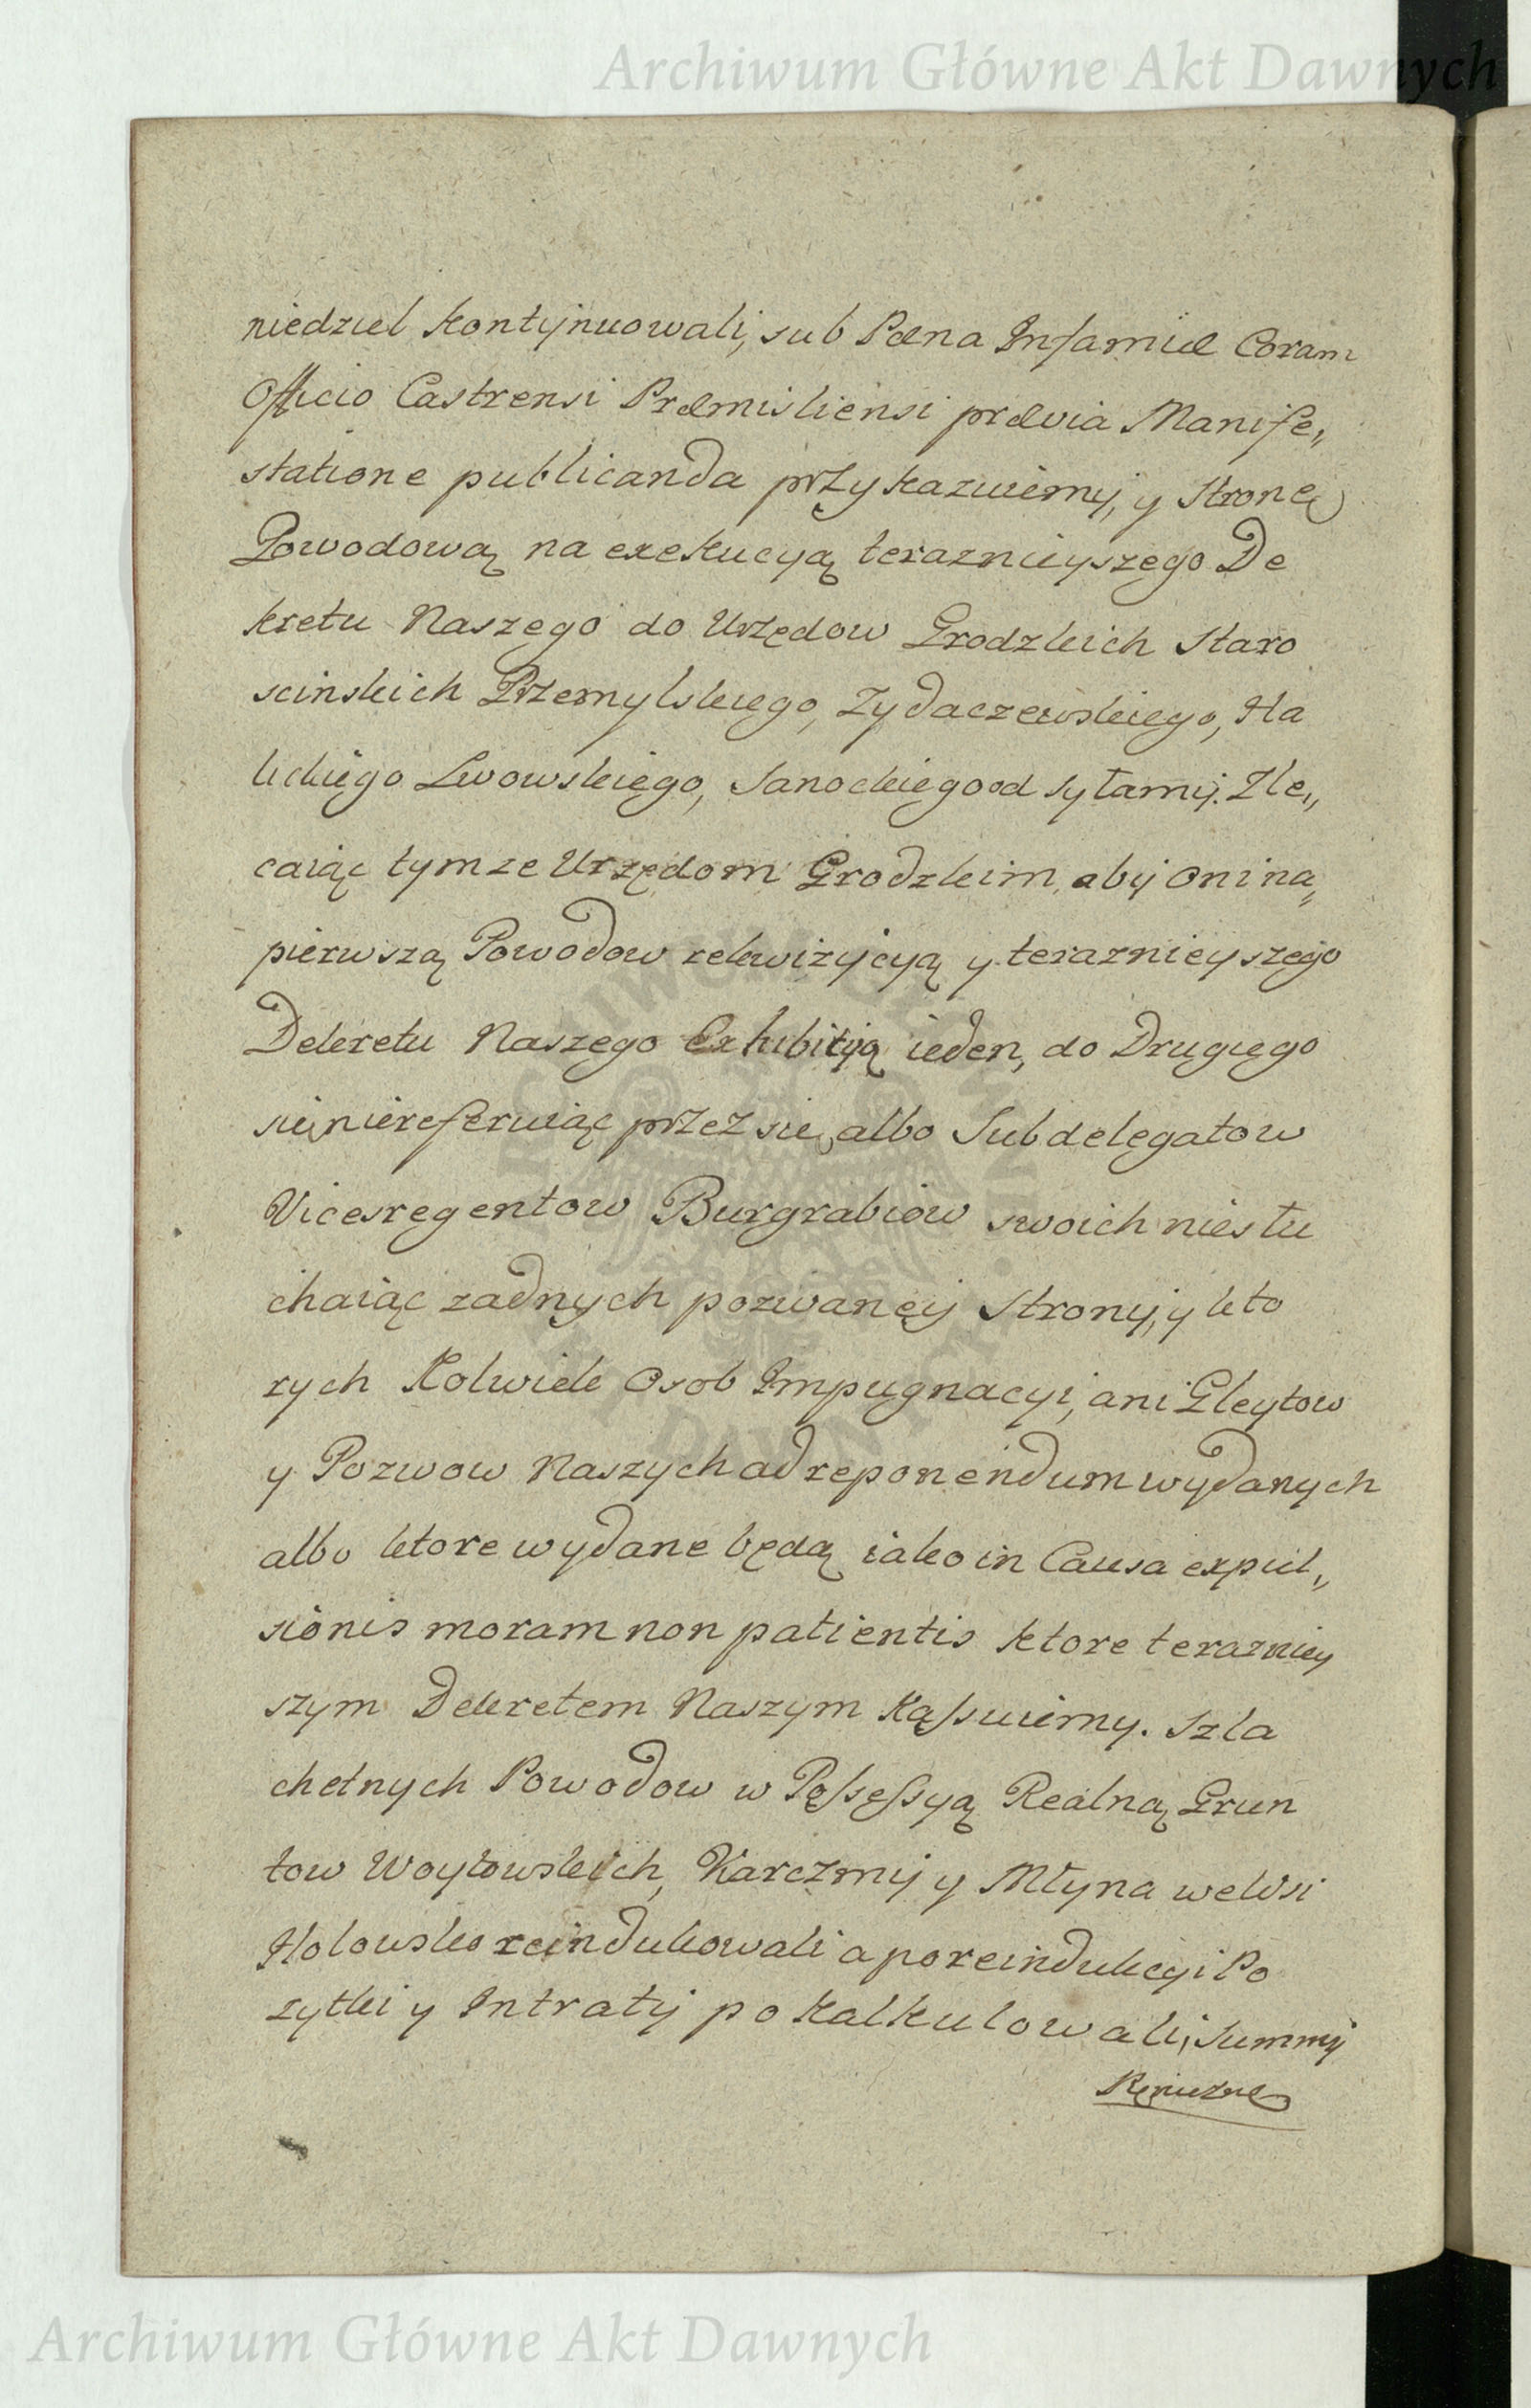 Archiwum Główne Akt Dawnych
niedziel kontynuowali, sub Pæna Infamiæ Coram
Officio Castrensi Præmisliensi prævia Manife„
statione publicanda przykazuiemy, y Stronę
Powodową na exekucyą teraznieyszego De
kretu Naszego do Urzędow Grodzkich Staro
scinskich Przemylskiego, Zydaczewskiego, Ha
lickiego Lwowskiego, Sanockiego odsyłamy. Zle„
caiąc tymze Urzędom Grodzkim, aby oni na„
pierwszą Powodow rekwizycyą y teraznieyszego
Dekretu Naszego Exhibicyą ieden, do Drugiego
się niereferuiąc przez się, albo Subdelegatow
Vicesregentow Burgrabiow swoich niesłu
chaiąc zadnych pozwaney Strony, y kto
rych Kolwiek Osob Impugnacyi, ani Gleytow
y Pozwow Naszych ad reponendum wydanych
albo ktore wydane będą iako in Causa expul„
sionis moram non patientis ktore terazniey
szym Dekretem Naszym Kassuiemy. Szla
chetnych Powodow w Possessyą Realną Grun
tow Woytowskich, Karczmy y Młyna we Wsi
Holowsko reindukowali a po reindukcyi Po
zytki y Intraty pokalkulowali, Summy
Archiwum Główne Akt Dawnych